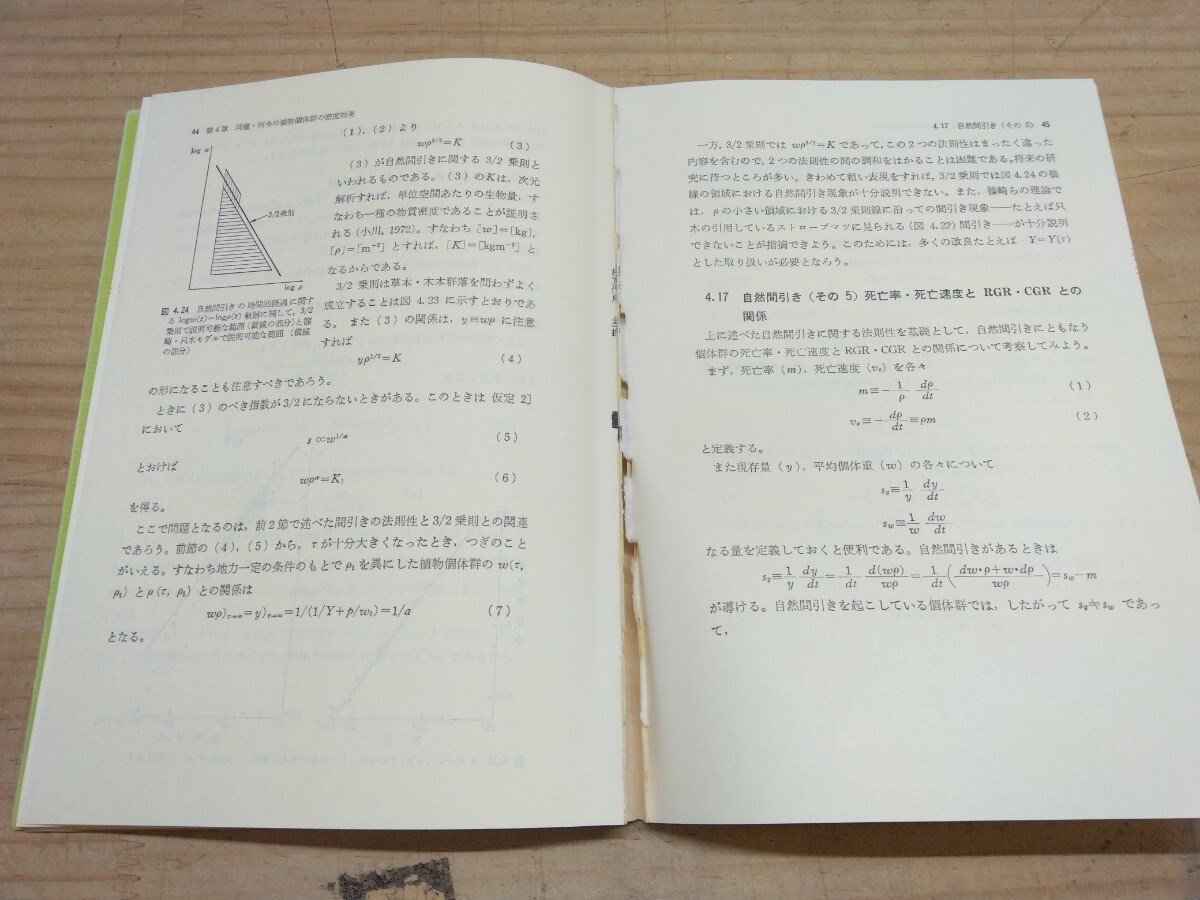 44 第4章 同種・同令の植物個体群の密度効果
log w
3/2乗則
log ρ
図 4.24 自然間引きの時間的経過に関す
る logw(t)～logρ(t) 軌跡に関して, 3/2
乗則で説明可能な範囲 (縦線の部分) と篠
崎・只木モデルで説明可能な範囲 (横線
の部分)
(1), (2) より
wρ³/²=K (3)
(3) が自然間引きに関する 3/2 乗則と
いわれるものである。(3) のKは, 次元
解析すれば, 単位空間あたりの生物量, す
なわち一種の物質密度であることが証明さ
れる (小川, 1972)。すなわち [w]=[kg],
[ρ]=[m⁻²] とすれば, [K]=[kgm⁻³] と
なるからである。
3/2 乗則は草本・木本群落を問わずよく
成立することは図 4.23 に示すとおりであ
る。また (3) の関係は, y≡wρ に注意
すれば
yρ¹/²=K (4)
の形になることも注意すべきであろう。
ときに (3) のべき指数が3/2にならないときがある。このときは 仮定 2]
において
s∝w¹/ᵅ (5)
とおけば
wρᵅ=K₁ (6)
を得る。
ここで問題となるのは, 前2節で述べた間引きの法則性と3/2乗則との関連
であろう。前節の (4), (5) から, τが十分大きくなったとき, つぎのこと
がいえる。すなわち地力一定の条件のもとで ρ₁を異にした植物個体群の w(τ,
ρ₁) と ρ(τ, ρ₁) との関係は
wρ)τ→∞=y)τ→∞=1/(1/Y+p/w₀)=1/a (7)
となる。
4.17 自然間引き (その 5) 45
一方, 3/2乗則では wρ³/²=K であって, この2つの法則性はまったく違った
内容を含むので, 2つの法則性の間の調和をはかることは困難である。将来の研
究に待つところが多い。きわめて粗い表現をすれば, 3/2乗則では図4.24の横
線の領域における自然間引き現象が十分説明できない。また, 篠崎らの理論で
は, ρの小さい領域における3/2乗則線に沿っての間引き現象――たとえば只
木の引用しているストローブマツに見られる (図 4.22) 間引き――が十分説明
できないことが指摘できよう。このためには, 多くの改良たとえば Y=Y(τ)
とした取り扱いが必要となろう。
4.17 自然間引き (その 5) 死亡率・死亡速度と RGR・CGR との
関係
上に述べた自然間引きに関する法則性を基礎として, 自然間引きにともなう
個体群の死亡率・死亡速度とRGR・CGRとの関係について考察してみよう。
まず, 死亡率 (m), 死亡速度 (vρ) を各々
m≡−1/ρ dρ/dt (1)
vρ≡−dρ/dt≡ρm (2)
と定義する。
また現存量 (y), 平均個体重 (w) の各々について
sy≡1/y dy/dt
sw≡1/w dw/dt
なる量を定義しておくと便利である。自然間引きがあるときは
sy≡1/y dy/dt=1/dt d(wρ)/wρ=1/dt(dw・ρ+w・dρ/wρ)=sw−m
が導ける。自然間引きを起こしている個体群では, したがって sy≒sw であっ
て,